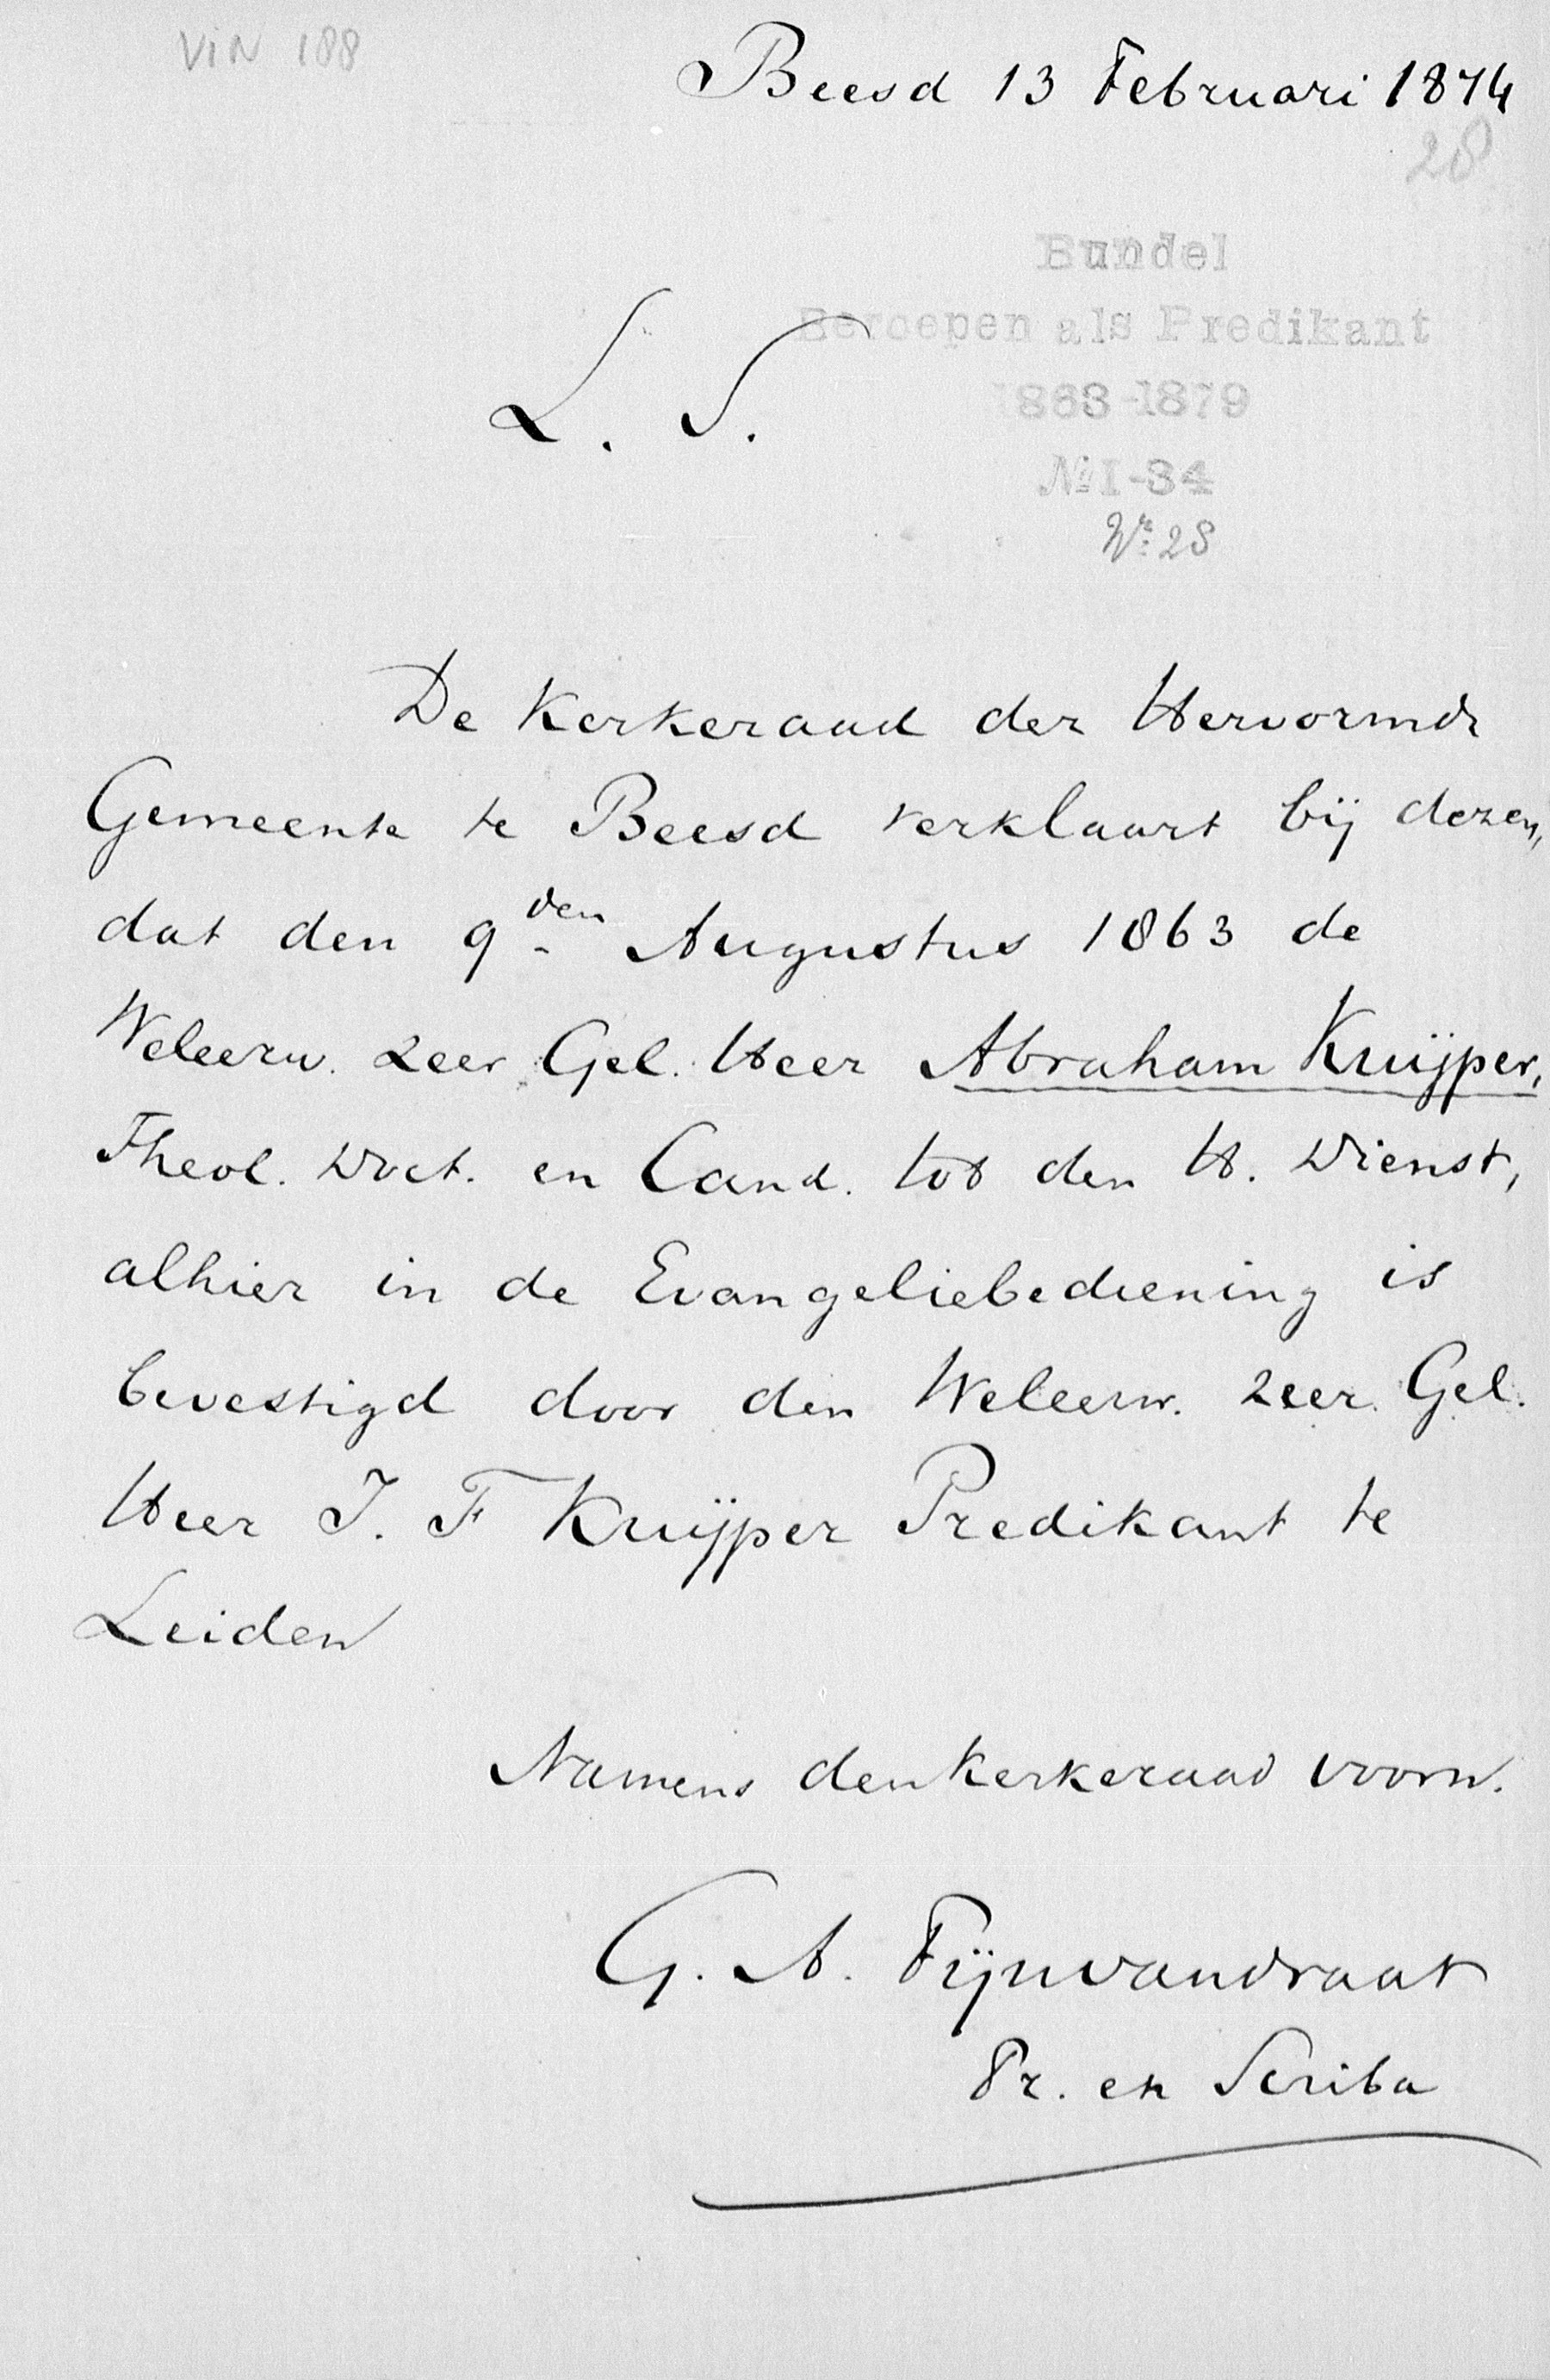 VIN 188
Beesd 13 Februari 1874
28
Bundel
Beroepen als Predikant
1863-1879
L. S.
№ I-34
Nr. 28
De Kerkeraad der Hervormde
Gemeente te Beesd verklaart bij dezen,
dat den 9den Augustus 1863 de
Weleerw. Zeer Gel. Heer Abraham Kuijper,
Theol. Doct. en Cand. tot den H. Dienst,
alhier in de Evangeliebediening is
bevestigd door den Weleerw. Zeer Gel.
Heer J. F Kuijper Predikant te
Leiden
Namens den Kerkeraad voorn.
G. A. Fijnvandraat
Pr. en Scriba